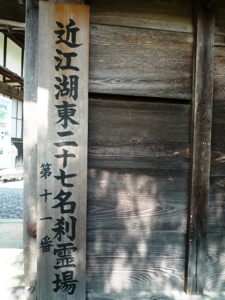 近江湖東二十七名刹霊場
第十一番